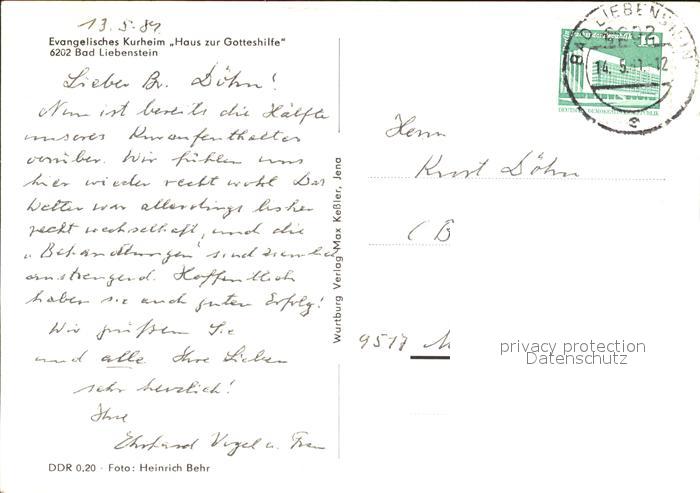 13.5.81
Evangelisches Kurheim „Haus zur Gotteshilfe"
6202 Bad Liebenstein
Lieber Br. Döhn!
Nun ist bereits die Hälfte
unseres Kuraufenthaltes
vorüber. Wir fühlen uns
hier wieder recht wohl Das
Wetter war allerdings bisher
recht wechselhaft, und die
„Behandlungen" sind ziemlich
anstrengend. Hoffentlich
haben sie auch guten Erfolg!
Wir grüßen Sie
und alle Ihre Lieben
sehr herzlich!
Ihre
Ehrhard Vogel u. Frau
DDR 0,20 · Foto: Heinrich Behr
Wurtburg Verlag Max Keßler, Jena
BAD LIEBENSTEIN
6202
14. 5. 81. 12
e
DEUTSCHE DEMOKRATISCHE REPUBLIK
Herrn
Kurt Döhn
( B
9517 M
privacy protection
Datenschutz